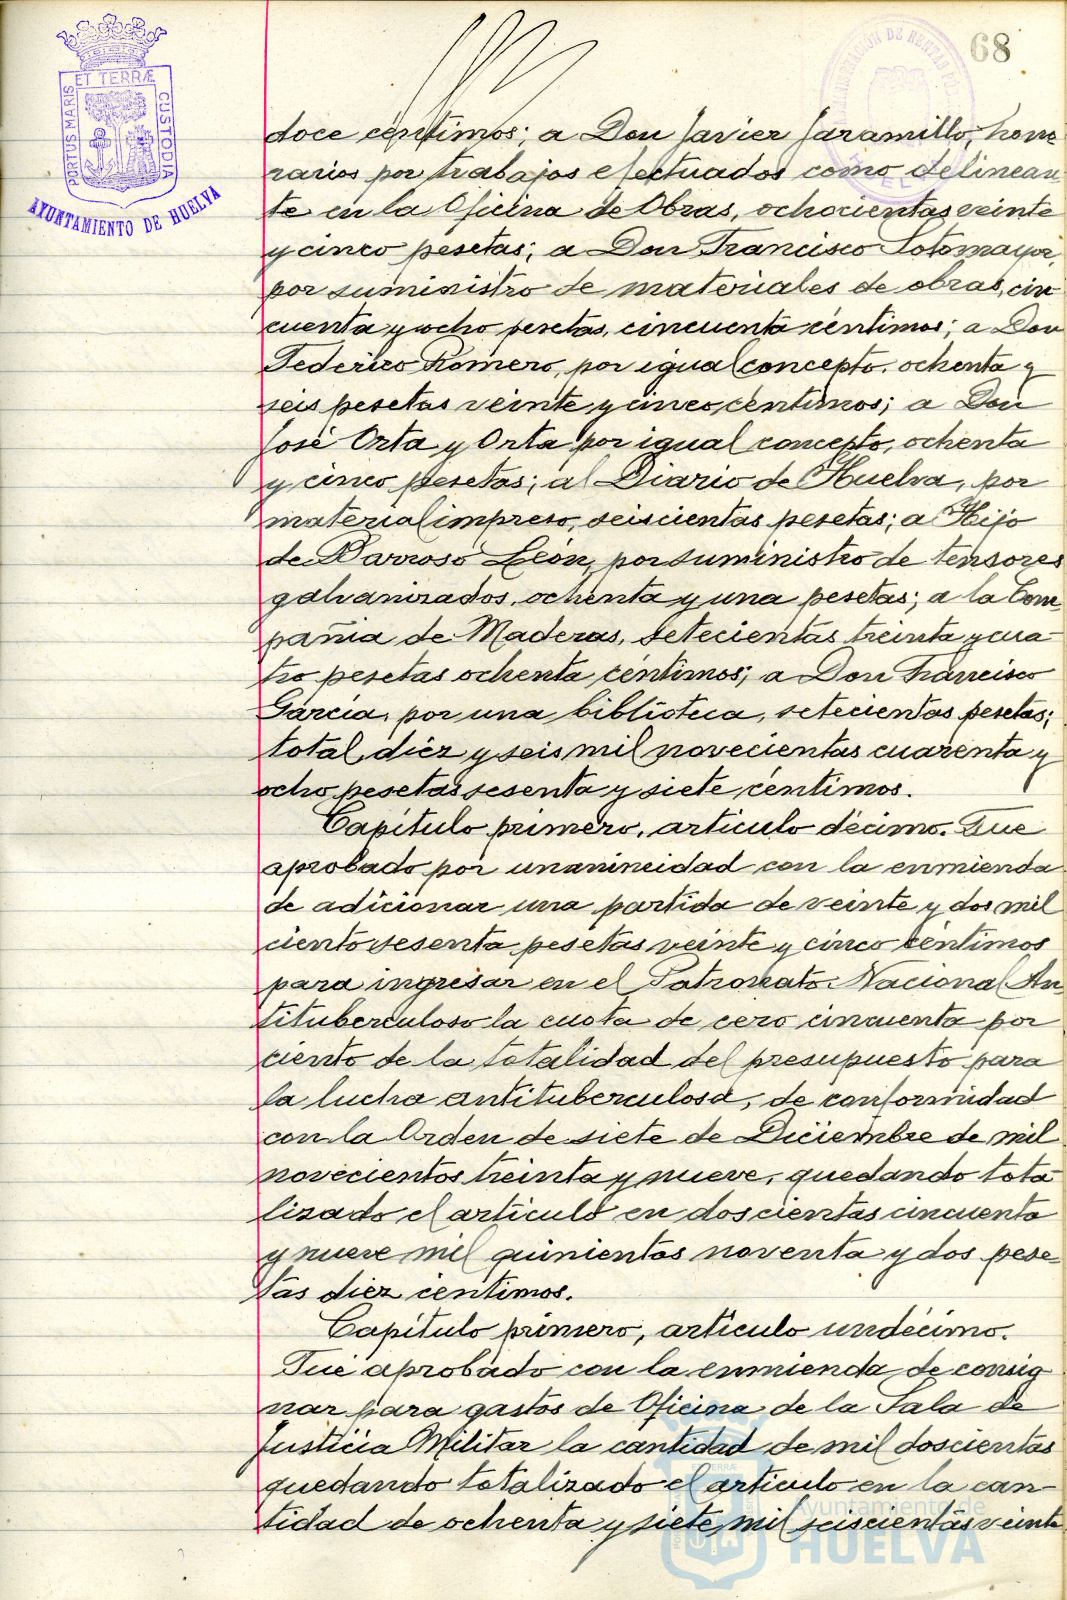 68
ET TERRÆ
PORTUS MARIS
CUSTODIA
AYUNTAMIENTO DE HUELVA
doce céntimos; a Don Javier Jaramillo, hono-
rarios por trabajos efectuados como delinean-
te en la Oficina de Obras, ochocientas veinte
y cinco pesetas; a Don Francisco Sotomayor,
por suministro de materiales de obras, cin-
cuenta y ocho pesetas, cincuenta céntimos; a Don
Federico Romero, por igual concepto, ochenta y
seis pesetas veinte y cinco céntimos; a Don
José Orta y Orta por igual concepto, ochenta
y cinco pesetas; al Diario de Huelva, por
material impreso, seiscientas pesetas; a Hijo
de Barroso León, por suministro de tensores
galvanizados, ochenta y una pesetas; a la Com-
pañia de Maderas, setecientas treinta y cua-
tro pesetas ochenta céntimos; a Don Francisco
García, por una biblioteca, setecientas pesetas;
total diez y seis mil novecientas cuarenta y
ocho pesetas sesenta y siete céntimos.
Capítulo primero, artículo décimo. Fue
aprobado por unanimidad con la enmienda
de adicionar una partida de veinte y dos mil
ciento sesenta pesetas veinte y cinco céntimos
para ingresar en el Patronato Nacional An-
tituberculoso la cuota de cero cincuenta por
ciento de la totalidad del presupuesto para
la lucha antituberculosa, de conformidad
con la Orden de siete de Diciembre de mil
novecientos treinta y nueve, quedando tota-
lizado el artículo en doscientas cincuenta
y nueve mil quinientas noventa y dos pese-
tas diez céntimos.
Capítulo primero, artículo undécimo.
Fué aprobado con la enmienda de consig-
nar para gastos de Oficina de la Sala de
Justicia Militar la cantidad de mil doscientas
quedando totalizado el artículo en la can-
tidad de ochenta y siete mil seiscientas veinte
Ayuntamiento de
HUELVA